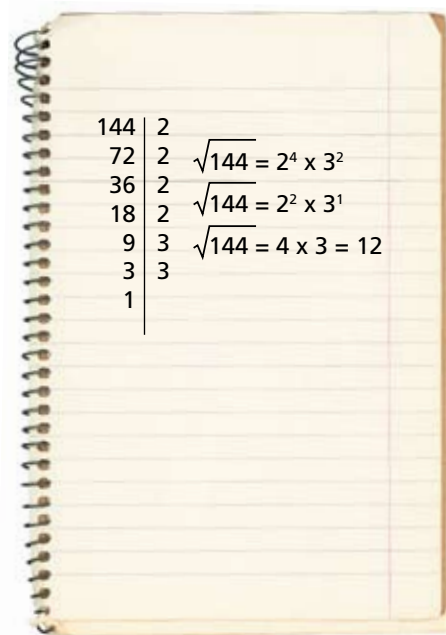 144 | 2
72 | 2
36 | 2
18 | 2
9 | 3
3 | 3
1 |
√144 = 2⁴ x 3²
√144 = 2² x 3¹
√144 = 4 x 3 = 12